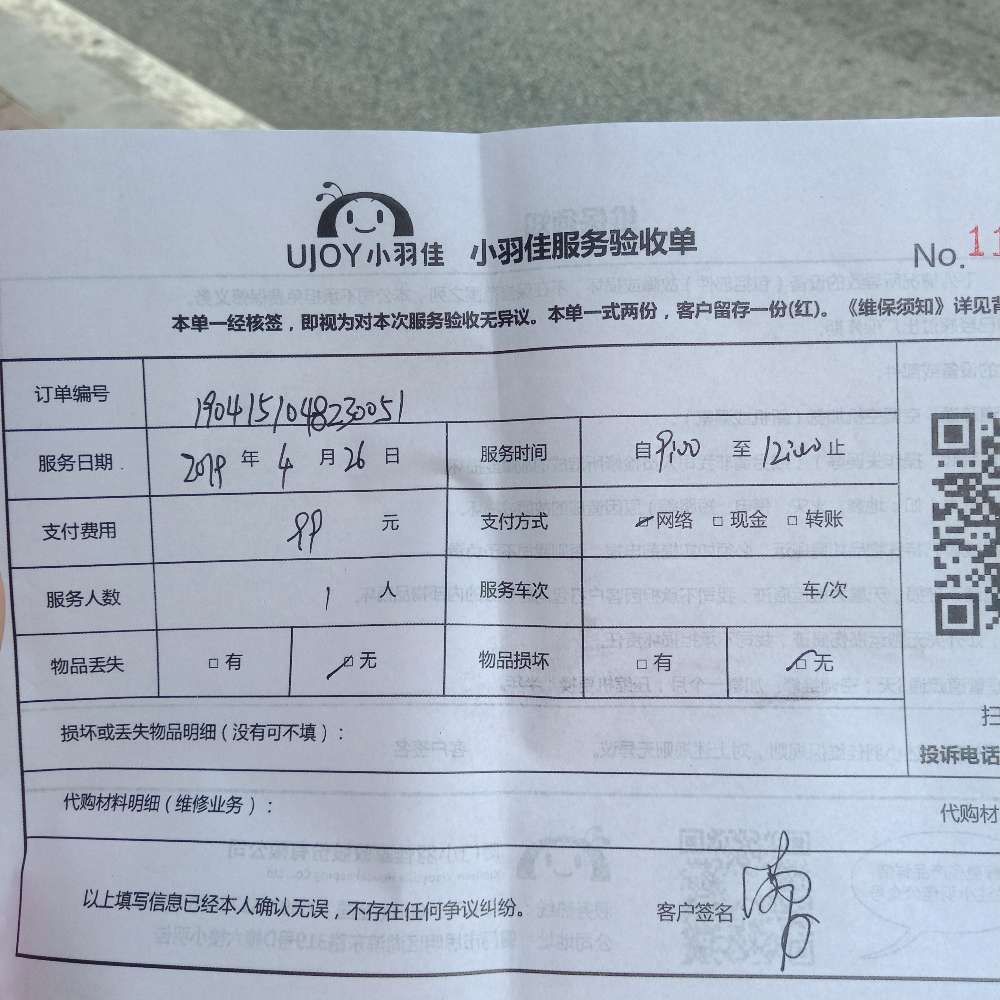 UJOY小羽佳 小羽佳服务验收单 No.11
本单一经核签，即视为对本次服务验收无异议。本单一式两份，客户留存一份(红)。《维保须知》详见背
订单编号 1904151048230051
服务日期 2019 年 4 月 26 日 服务时间 自 9:00 至 12:00 止
支付费用 99 元 支付方式 网络 现金 转账
服务人数 1 人 服务车次 车/次
物品丢失 有 无 物品损坏 有 无
扫
损坏或丢失物品明细(没有可不填)：
投诉电话
代购材料明细(维修业务)： 代购材
以上填写信息已经本人确认无误，不存在任何争议纠纷。 客户签名